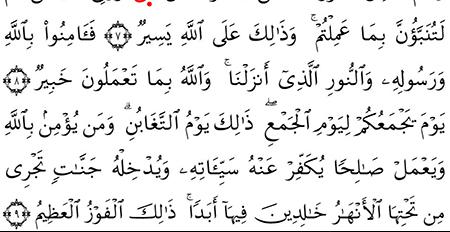 لَتُنَبَّؤُنَّ بِمَا عَمِلْتُمْ ۚ وَذَٰلِكَ عَلَى ٱللَّهِ يَسِيرٌ ﴿٧﴾ فَـَٔامِنُوا۟ بِٱللَّهِ
وَرَسُولِهِۦ وَٱلنُّورِ ٱلَّذِىٓ أَنزَلْنَا ۚ وَٱللَّهُ بِمَا تَعْمَلُونَ خَبِيرٌ ﴿٨﴾
يَوْمَ يَجْمَعُكُمْ لِيَوْمِ ٱلْجَمْعِ ۖ ذَٰلِكَ يَوْمُ ٱلتَّغَابُنِ ۗ وَمَن يُؤْمِنۢ بِٱللَّهِ
وَيَعْمَلْ صَـٰلِحًا يُكَفِّرْ عَنْهُ سَيِّـَٔاتِهِۦ وَيُدْخِلْهُ جَنَّـٰتٍ تَجْرِى
مِن تَحْتِهَا ٱلْأَنْهَـٰرُ خَـٰلِدِينَ فِيهَآ أَبَدًا ۚ ذَٰلِكَ ٱلْفَوْزُ ٱلْعَظِيمُ ﴿٩﴾